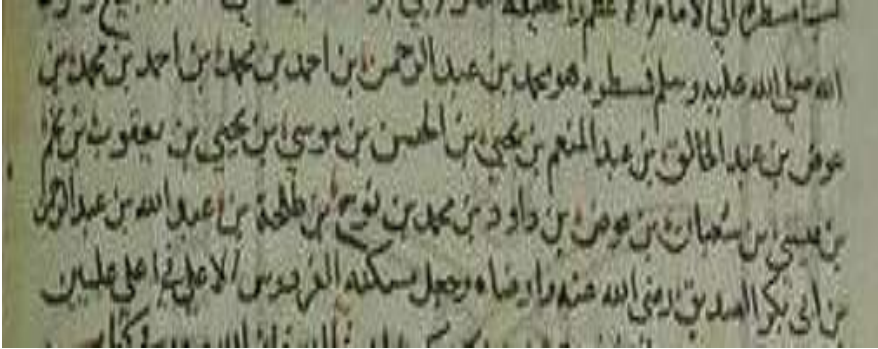 نسبا مسطرا الى الامام الاعظم والخليفة
الله صلي الله عليه وسلم فسطره هو محمد بن عبد الرحمن بن احمد بن محمد بن احمد بن محمد بن
عوض بن عبد الخالق بن عبد المنعم بن يحيي بن الحسن بن موسي بن يحيي بن يعقوب بن نجم
بن عيسي بن شعبان بن عوض بن داود بن محمد بن نوح بن طلحة بن عبد الله بن عبد الرحمن
بن ابي بكر الصديق رضي الله عنه وارضاه وجعل مسكنه الفردوس الاعلي في اعلي عليين